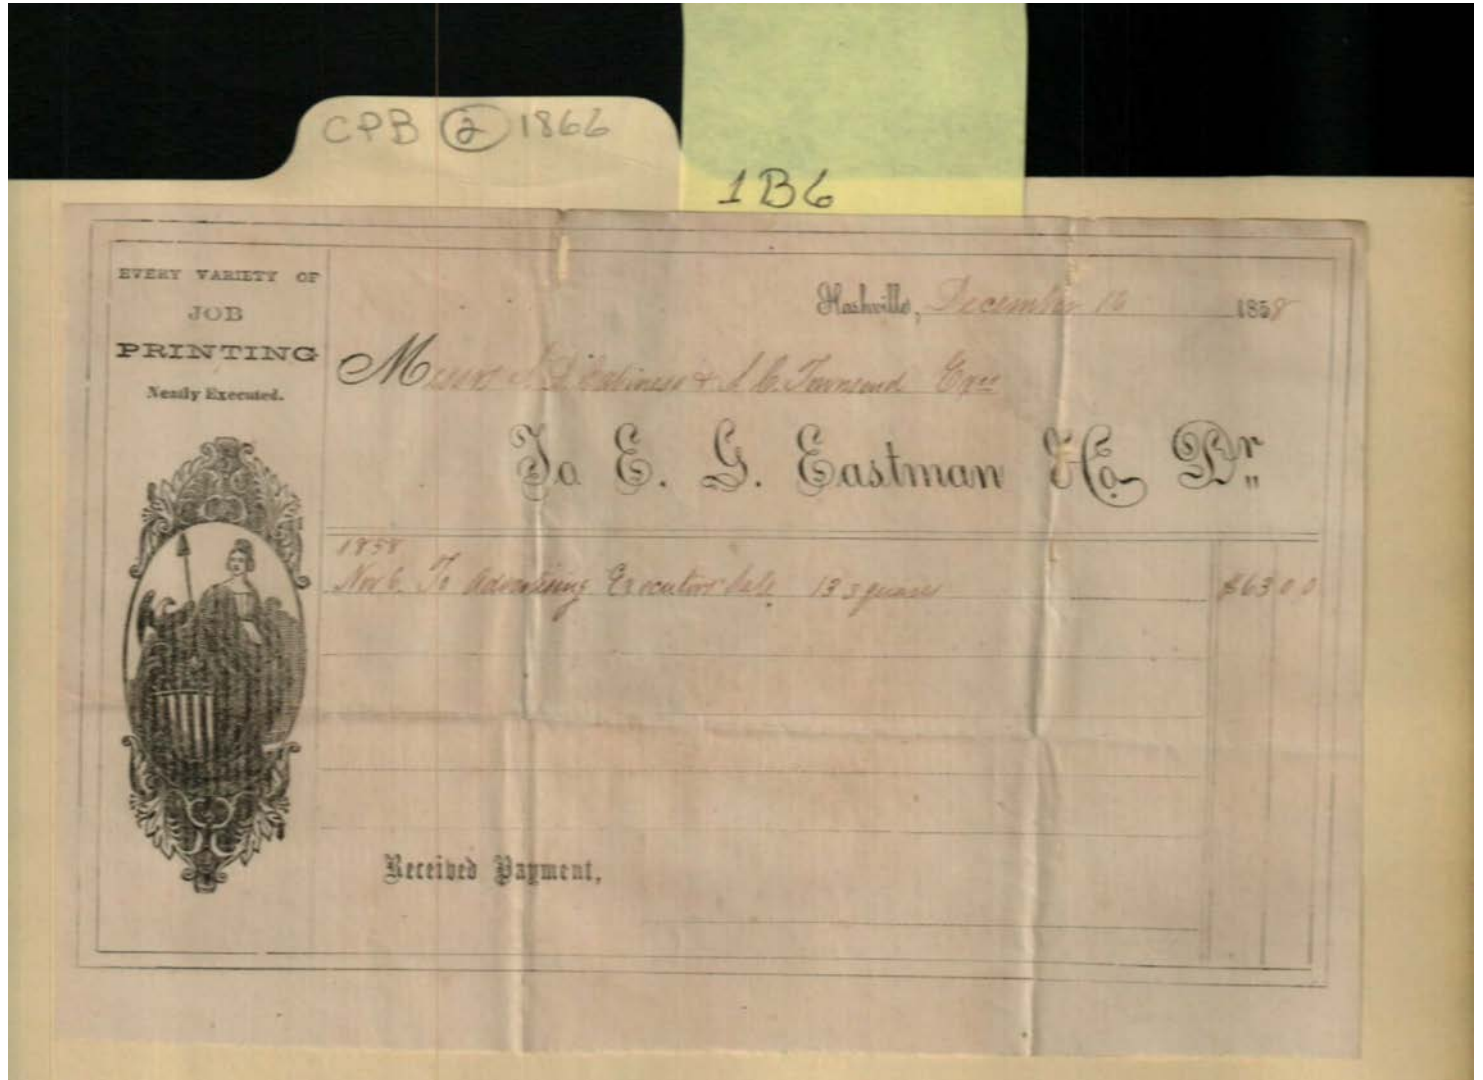 CPB 2 1866
1B6
EVERY VARIETY OF
JOB
PRINTING
Neatly Executed.
Nashville, December 16 1858
Messrs S. D. Cabiness & S. C. Townsend Exrs
To E. G. Eastman & Co. Dr.
1858
Nov 6. To Advertising Executors Sale 13 squares $63 00
Received Payment,